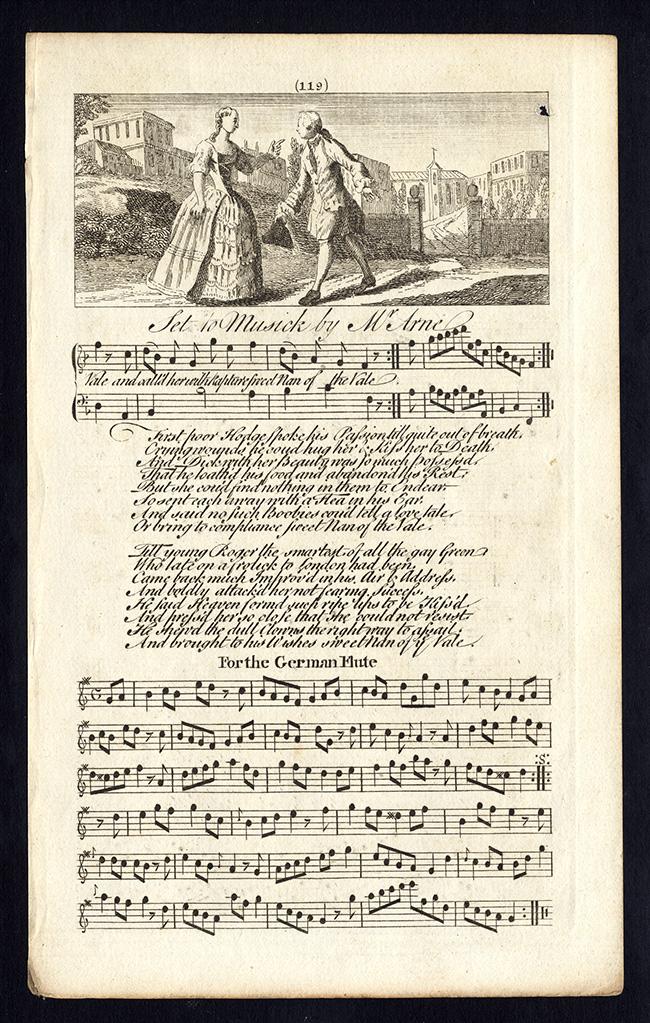 (119)
Set to Musick by Mr. Arne
Vale and call'd her with rapture sweet Nan of the Vale.
First poor Hodge spoke his Passion till quite out of breath,
Crying wounds he coud hug her & Kiss her to Death,
And Dick with her Beauty was so much possess'd,
That he loath'd his food and abandon'd his Rest,
But she could find nothing in them to Endear
So sent each away with a Flea in his Ear
And said no such Boobies coud tell a love tale,
Or bring to compliance sweet Nan of the Vale.
Till young Roger the smartest of all the gay Green
Who late on a frolick to London had been,
Came back much Improv'd in his Air & Address,
And boldly attack'd her not fearing Success,
He said Heaven form'd such ripe lips to be Kiss'd
And press'd her so close that she could not resist
He shew'd the dull Clowns the right way to assail,
And brought to his Wishes sweet Nan of ye Vale.
For the German Flute
:S: